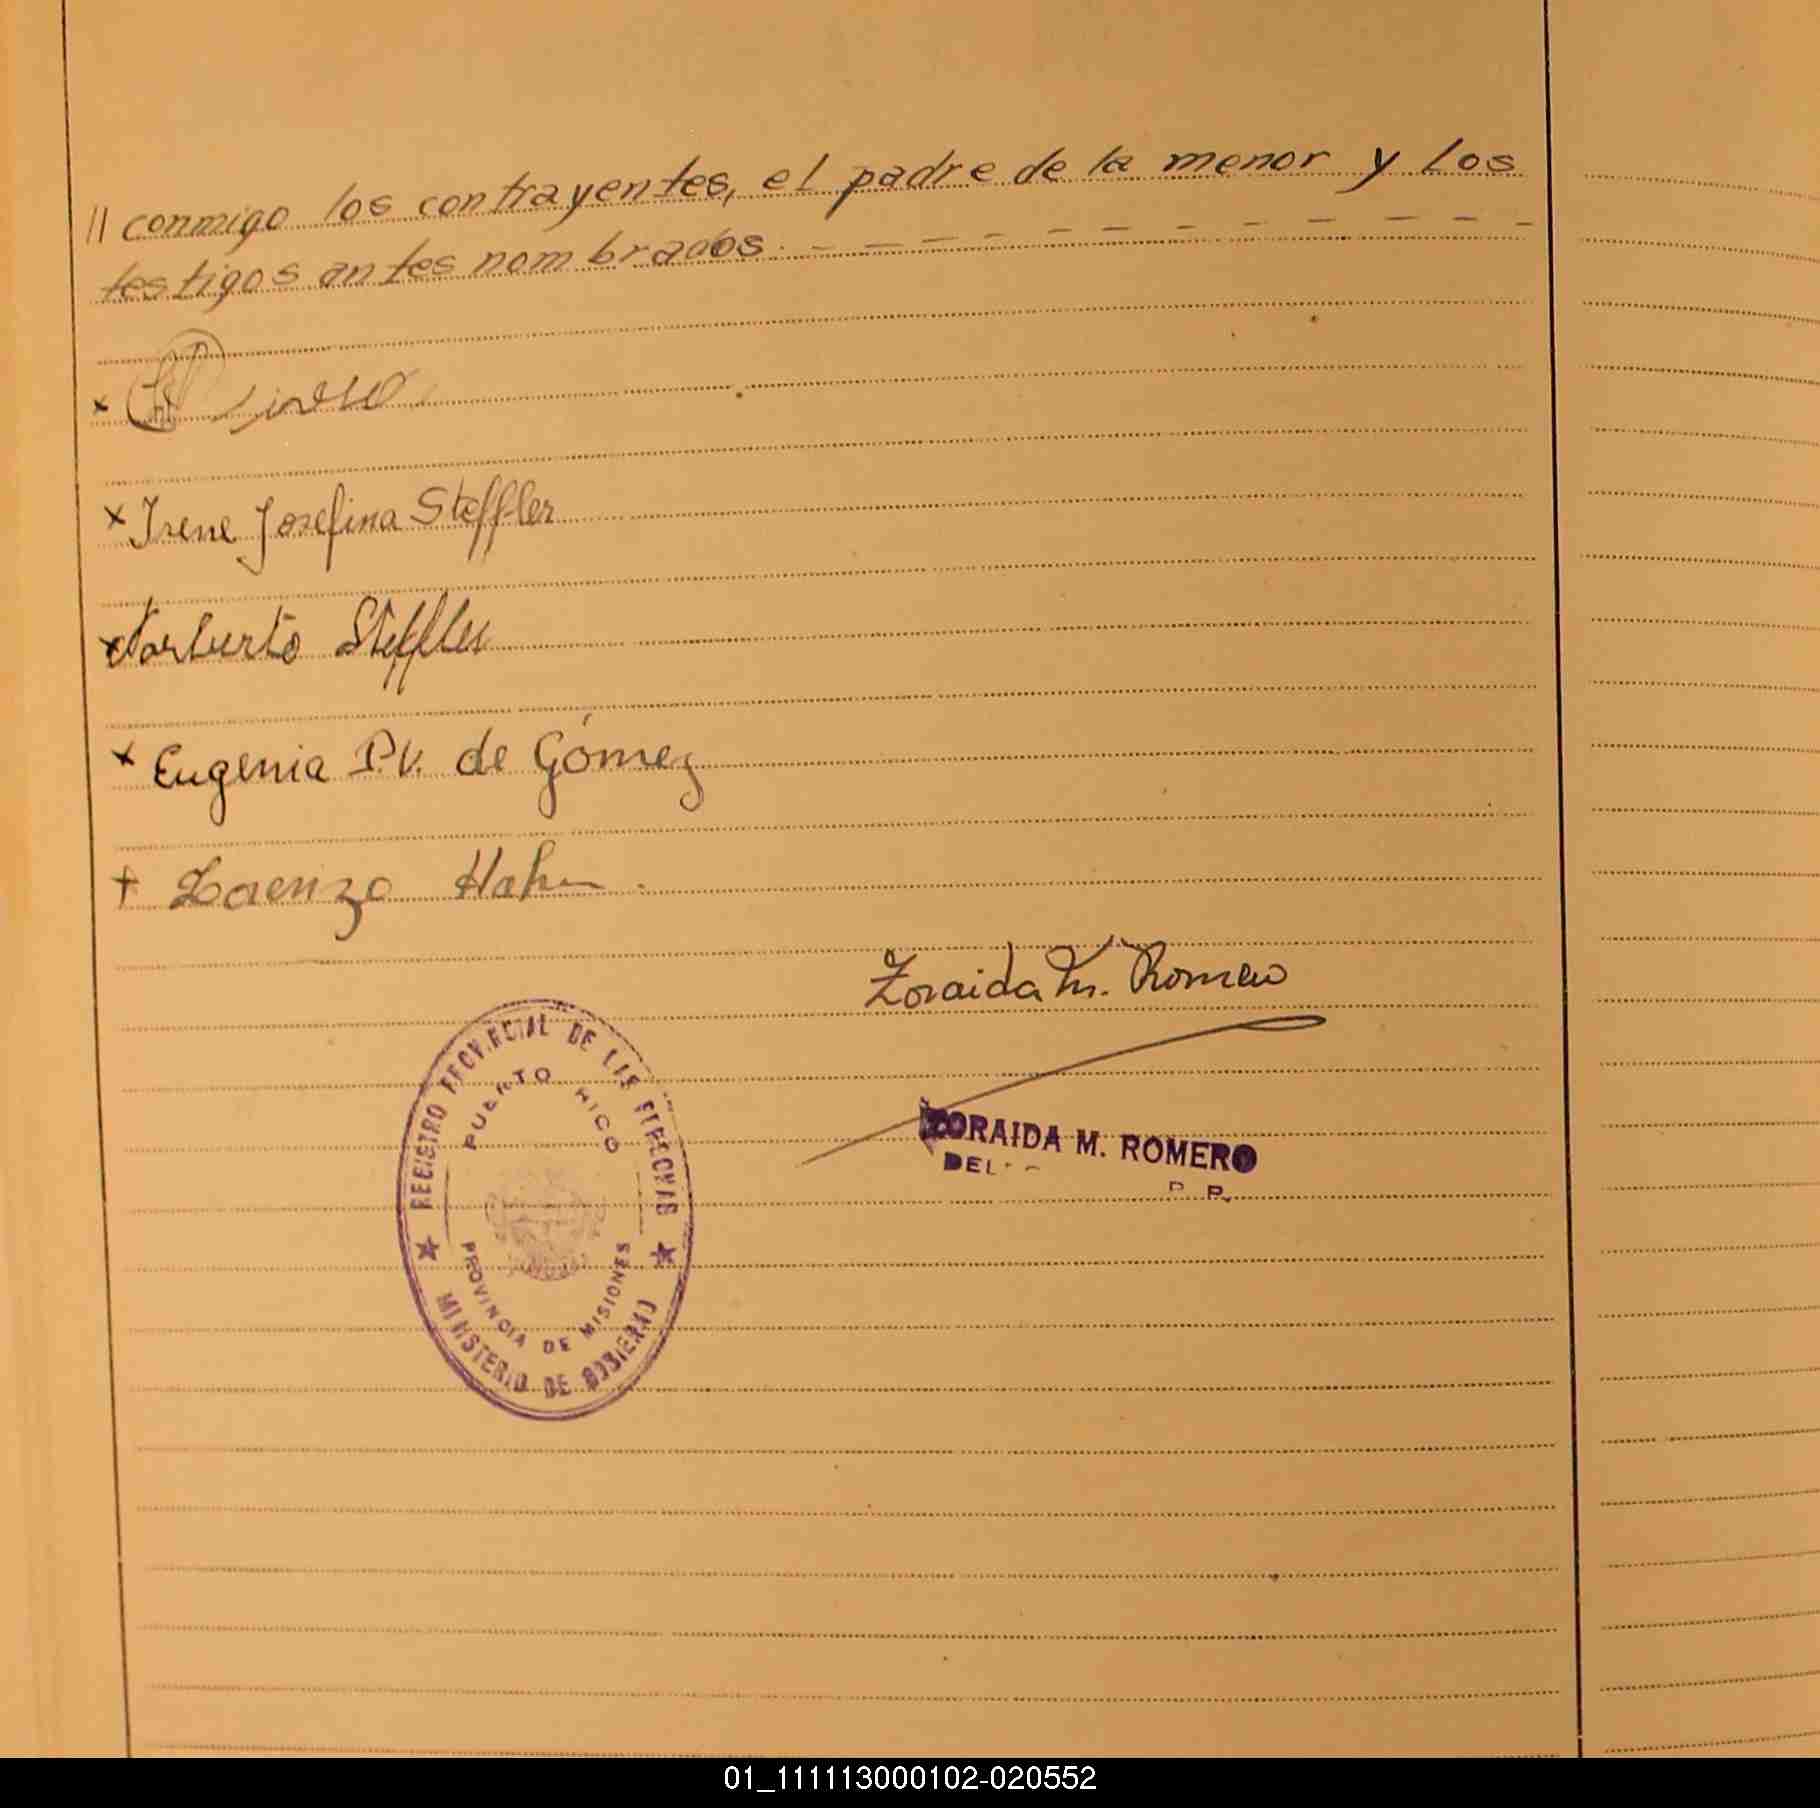 // conmigo los contrayentes, el padre de la menor y los
testigos antes nombrados. — — — — — — — — — — — —
x
x Irene Josefina Steffler
x Norberto Steffler
x Eugenia P.V. de Gómez
+ Lorenzo Hahn.
Zoraida M. Romero
REGISTRO PROVINCIAL DE LAS PERSONAS
PUERTO RICO
PROVINCIA DE MISIONES
★ MINISTERIO DE GOBIERNO ★
ZORAIDA M. ROMERO
01_111113000102-020552